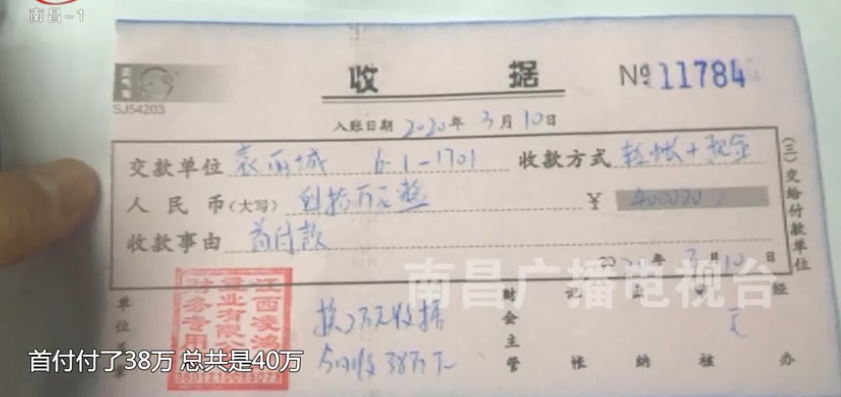 南昌-1
收据 № 11784
SJ54203
入账日期 2020年3月10日
交款单位 6-1-1701 收款方式 转帐+现金
人民币(大写) 肆拾万元整 ¥ 400000
收款事由 首付款
年3月10日
(三)交给付款单位
南昌广播电视台
江西凌鸿
置业有限公
财务专用
换2万元收据
另收38万元
单位盖章 财会主管 记帐 出纳 审核 经办
首付付了38万 总共是40万